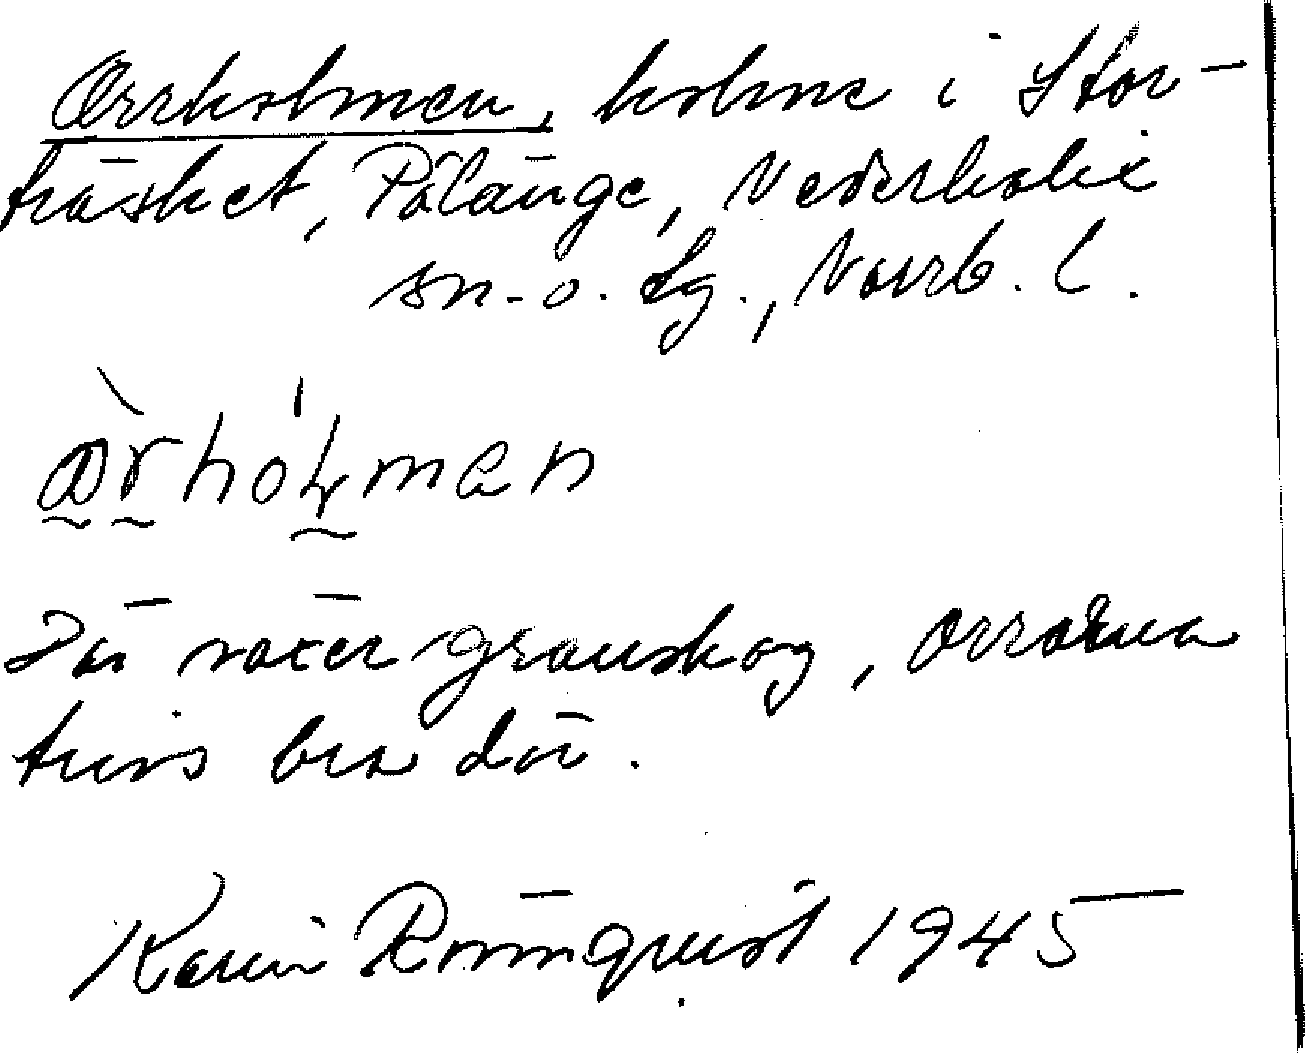 Orrholmen, holme i Stor-
träsket, Pålänge, Nederkalix
sn. o. tg., Norrb. l.
òrhólman
Där växer granskog, orrarna
trivs bra där.
Karin Rönnqvist 1945